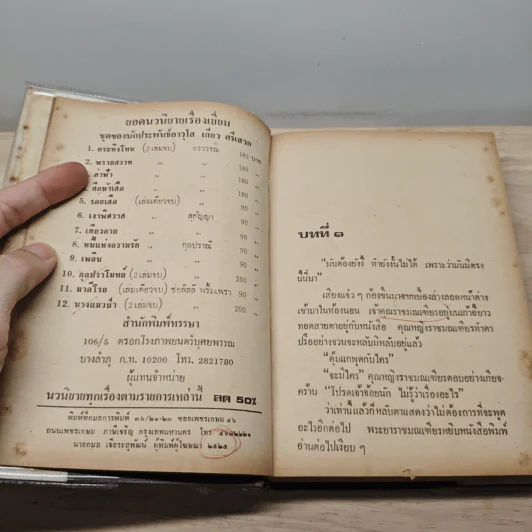 ยอดนวนิยายเรื่องเยี่ยม
ชุดของนักประพันธ์อาวุโส เลียว ศรีเสวก
1. กระทิงโทน (2เล่มจบ) อรวรรณ 185 บาท
2. พรายสวาท " " 180 "
3. ลาฟ้า " " 190 "
4. ศึกห้าเสือ " " 180 "
5. รอยเสือ (เล่มเดียวจบ) " 90 "
6. เงาพิศวาส " สุกัญญา 90 "
7. เดียวดาย " " 90 "
8. พื้นแห่งความรัก " กุลปราณี 90 "
9. เพลิน " " 90 "
10. กุลปราโมทย์ (2เล่มจบ) " 200 "
11. มาดีโรธ (เล่มเดียวจบ) ชอุ้ลลิลี พริ้มเพรา 90 "
12. นางแมวป่า (2เล่มจบ) " 200 "
สำนักพิมพ์หรรษา
106/5 ตรอกโรงภาพยนตร์บุศยพรรณ
บางลำภู ก.ท. 10200 โทร. 2821780
ผู้แทนจำหน่าย
นวนิยายทุกเรื่องตามรายการเหล่านี้ ลด 50%
ถนนเพชรเกษม ภาษีเจริญ กรุงเทพมหานคร โทร.
ผู้พิมพ์ผู้โฆษณา ๒๕๒๕
บทที่ ๑
"มันต้องยังงี้ ทำยังงั้นไม่ได้ เพราะว่ามันมีตรง
นี้นี่นา"
เสียงแจ๋ว ๆ ก้องขึ้นมาจากเบื้องล่างลอดหน้าต่าง
เข้ามาในห้องนอน เจ้าคุณราชมณเฑียรอยู่บนเก้าอี้ยาว
ทอดสายตาอยู่กับหนังสือ คุณหญิงราชมณเฑียรทำตา
ปรืออย่างจวนจะหลับมิหลับอยู่แล้ว
"ตุ้มแกพูดกับใคร"
"จะมีใคร" คุณหญิงราชมณเฑียรตอบอย่างเกียจ-
คร้าน "โปรดเจ้าจ้อยนัก ไม่รู้ว่าเรื่องอะไร"
ว่าเท่านั้นแล้วก็หลับตาแสดงว่าไม่ต้องการที่จะพูด
อะไรอีกต่อไป พระยาราชมณเฑียรหยิบหนังสือพิมพ์
อ่านต่อไปเงียบ ๆ